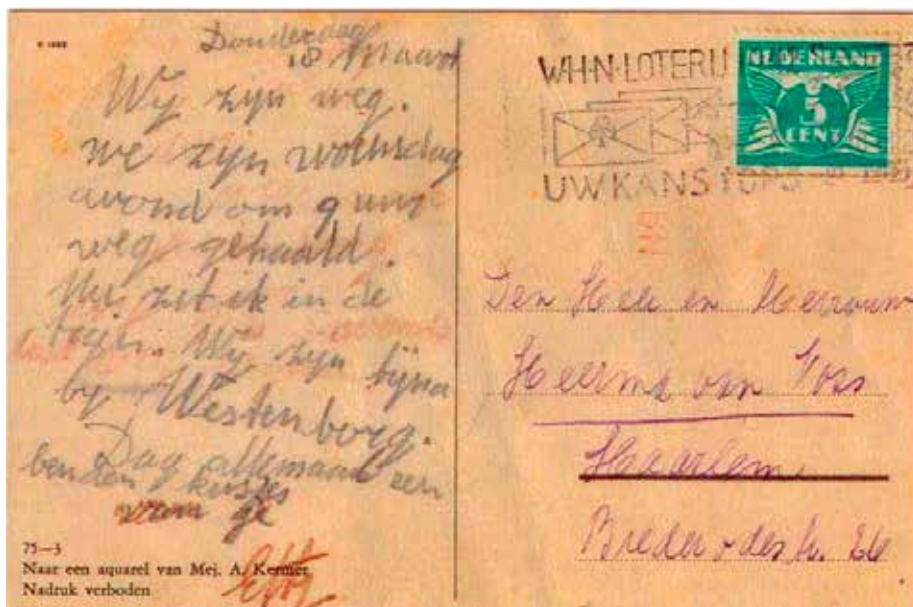 Donderdag
18 Maart
Wij zijn weg.
we zijn woensdag
avond om 9 uur
weg gehaald.
Nu zit ik in de
trijn. Wij zijn bijna
by Westenborg.
Dag allemaal een
kusjes
van je
Etty
75—3
Naar een aquarel van Mej. A. Kermer
Nadruk verboden
W·H·N·LOTERIJ
UW KANS
NEDERLAND
5
CENT
Den Heer en Merrouw
Heerma van Voss
Haarlem
Brederodestr.